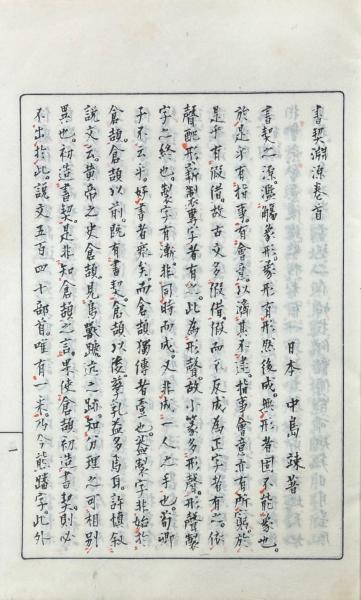 書契淵源卷首
日本 中島竦著
書契之源濫觴象形。象形有形然後成。無形者固不能象也。
於是乎有指事。有會意。以濟其不逮。指事會意亦有所窮。於
是乎有假借。故古文多假借。假而不反。成為正字者有之。依
聲配形。新製專字者有之。此為形聲。故小篆多形聲。形聲製
字之終也。製字有漸。非同時而成。又非成一人之手也。荀卿
子不云乎。好書者衆矣。而倉頡獨傳者壹也。盖製字非始於
倉頡。倉頡以前。既有書契。倉頡以後。孳乳益多焉耳。許慎叙
說文云。黃帝之史倉頡。見鳥獸蹏迒之跡。知分理之可相別
異也。初造書契。是非知倉頡之言。果使倉頡初造書契。則必
不出於此。說文五百四十部首。唯有一釆。乃今熊蹯字。此外
一